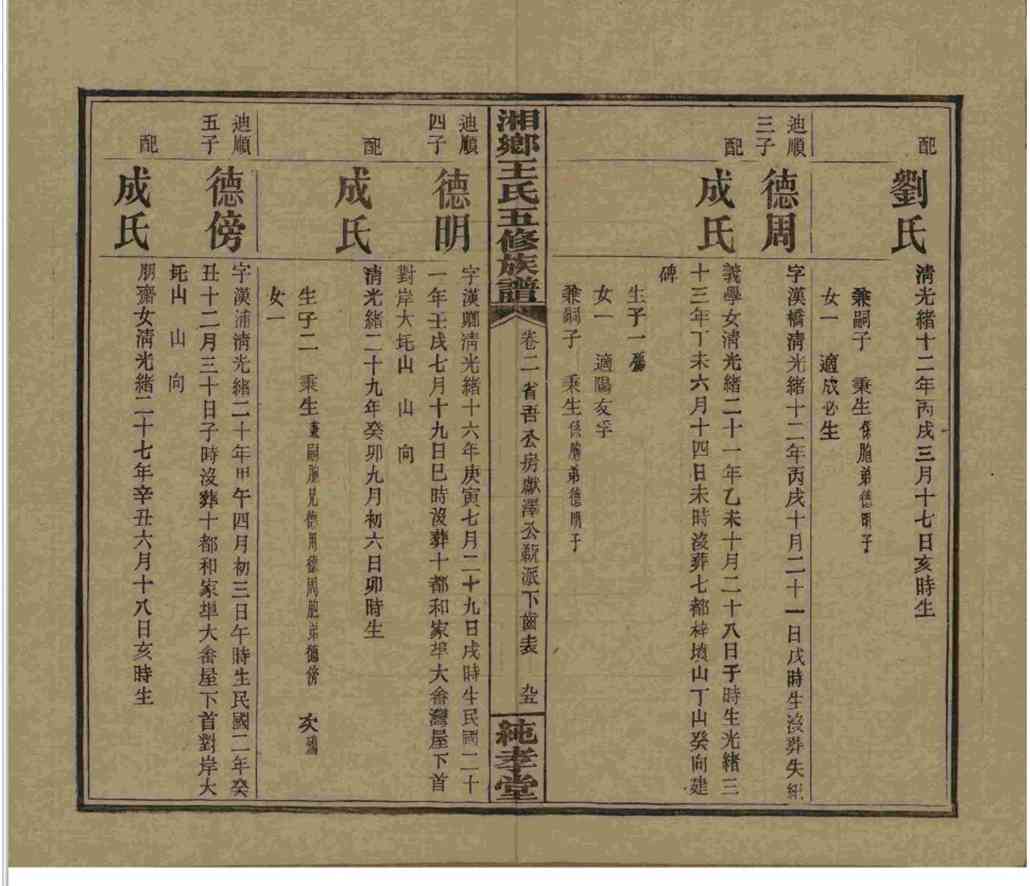 配
劉氏
清光緒十二年丙戌三月十七日亥時生
兼嗣子 秉生係胞弟德明子
女一 適成必生
迪順三子
德周
字漢橋清光緒十二年丙戌十月二十一日戌時生沒葬失紀
配
成氏
義學女清光緒二十一年乙未十月二十八日子時生光緒三
十三年丁未六月十四日未時沒葬七都梓塘山丁山癸向建
碑
生子一殤
女一 適陽友孚
兼嗣子 秉生係胞弟德明子
湘鄉王氏五修族譜
卷二 省吾公房獻澤公 派下齒表
純孝堂
迪順四子
德明
字漢卿清光緒十六年庚寅七月二十九日戌時生民國二十
一年壬戌七月十九日巳時沒葬十都和家埠大畬灣屋下首
對岸大圫山 山 向
配
成氏
清光緒二十九年癸卯九月初六日卯時生
生子二 秉生兼嗣胞兄德用德周胞弟德傍 次殤
女一
迪順五子
德傍
字漢浦清光緒二十年甲午四月初三日午時生民國二年癸
丑十二月三十日子時沒葬十都和家埠大畬屋下首對岸大
圫山 山 向
配
成氏
朋齋女清光緒二十七年辛丑六月十八日亥時生